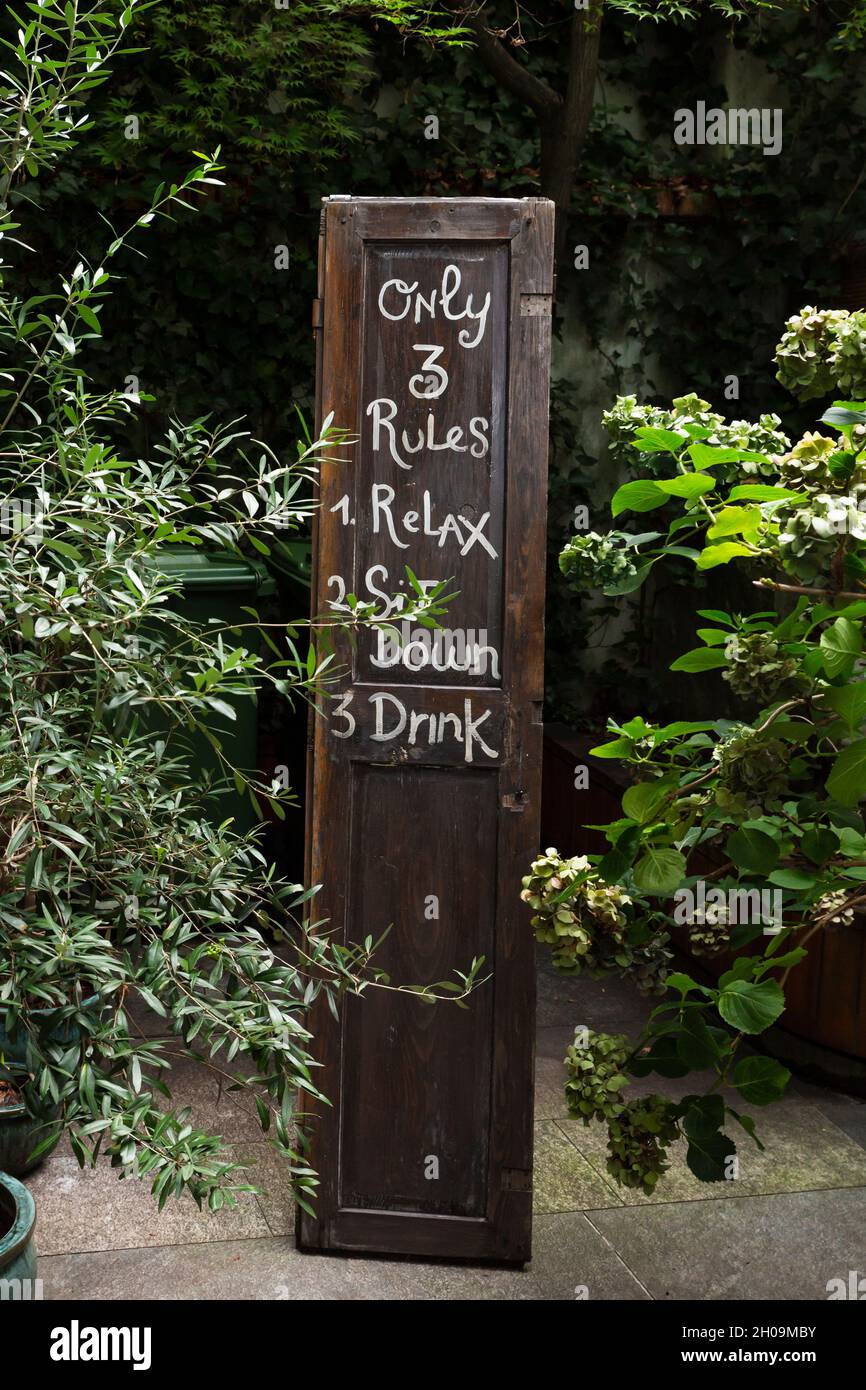 Only
3
Rules
1. Relax
2. Sit
Down
3 Drink
alamy
Image ID: 2H09MBY
www.alamy.com